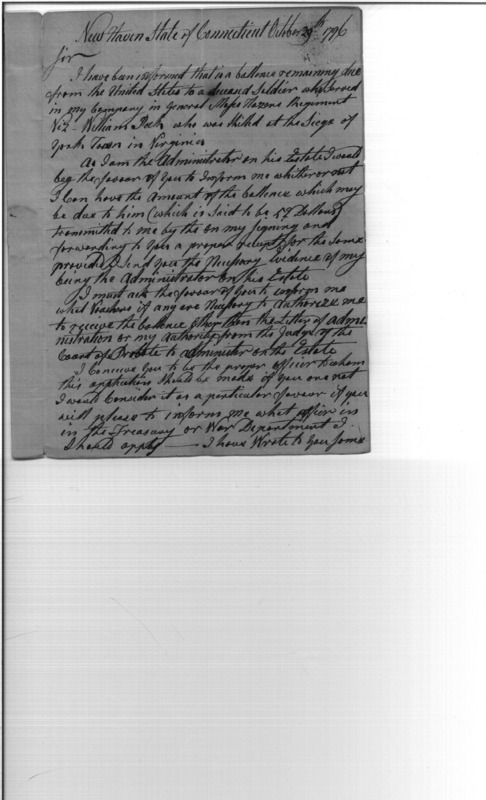 New Haven State of Connecticut October 29th 1796
Sir
I have been informed that is a ballence remaining due
from the United States to a deceased Soldier who served
in my Company in General Moses Hazens Regiment
Viz - William who was killd at the Siege of
York Town in Virginia
As I am the Administrator on his Estate I would
beg the favour of You to Inform me whither or not
I Can have the Amount of the ballence which may
be due to him (which is Said to be 59 Dollars)
transmitted to me by the on my Signing and
forwarding to You a proper receipt for the Same
provided I Send You the Nessary Evidence of my
being the Administrator on his Estate
I must ask the favour of You to inform me
what Vouchers if any are Nessary to Authorize me
to receive the ballence other than the Letter of admi=
nistration or my Authority from the Judge of the
Court of Probate to administer on the Estate
I Conceive You to be the proper officer to whom
this application Should be made if you are not
I would Consider it as a particular favour if you
will please to inform me what officer in
in the Treasury or War Department I
Should apply — I have Wrote to You Some